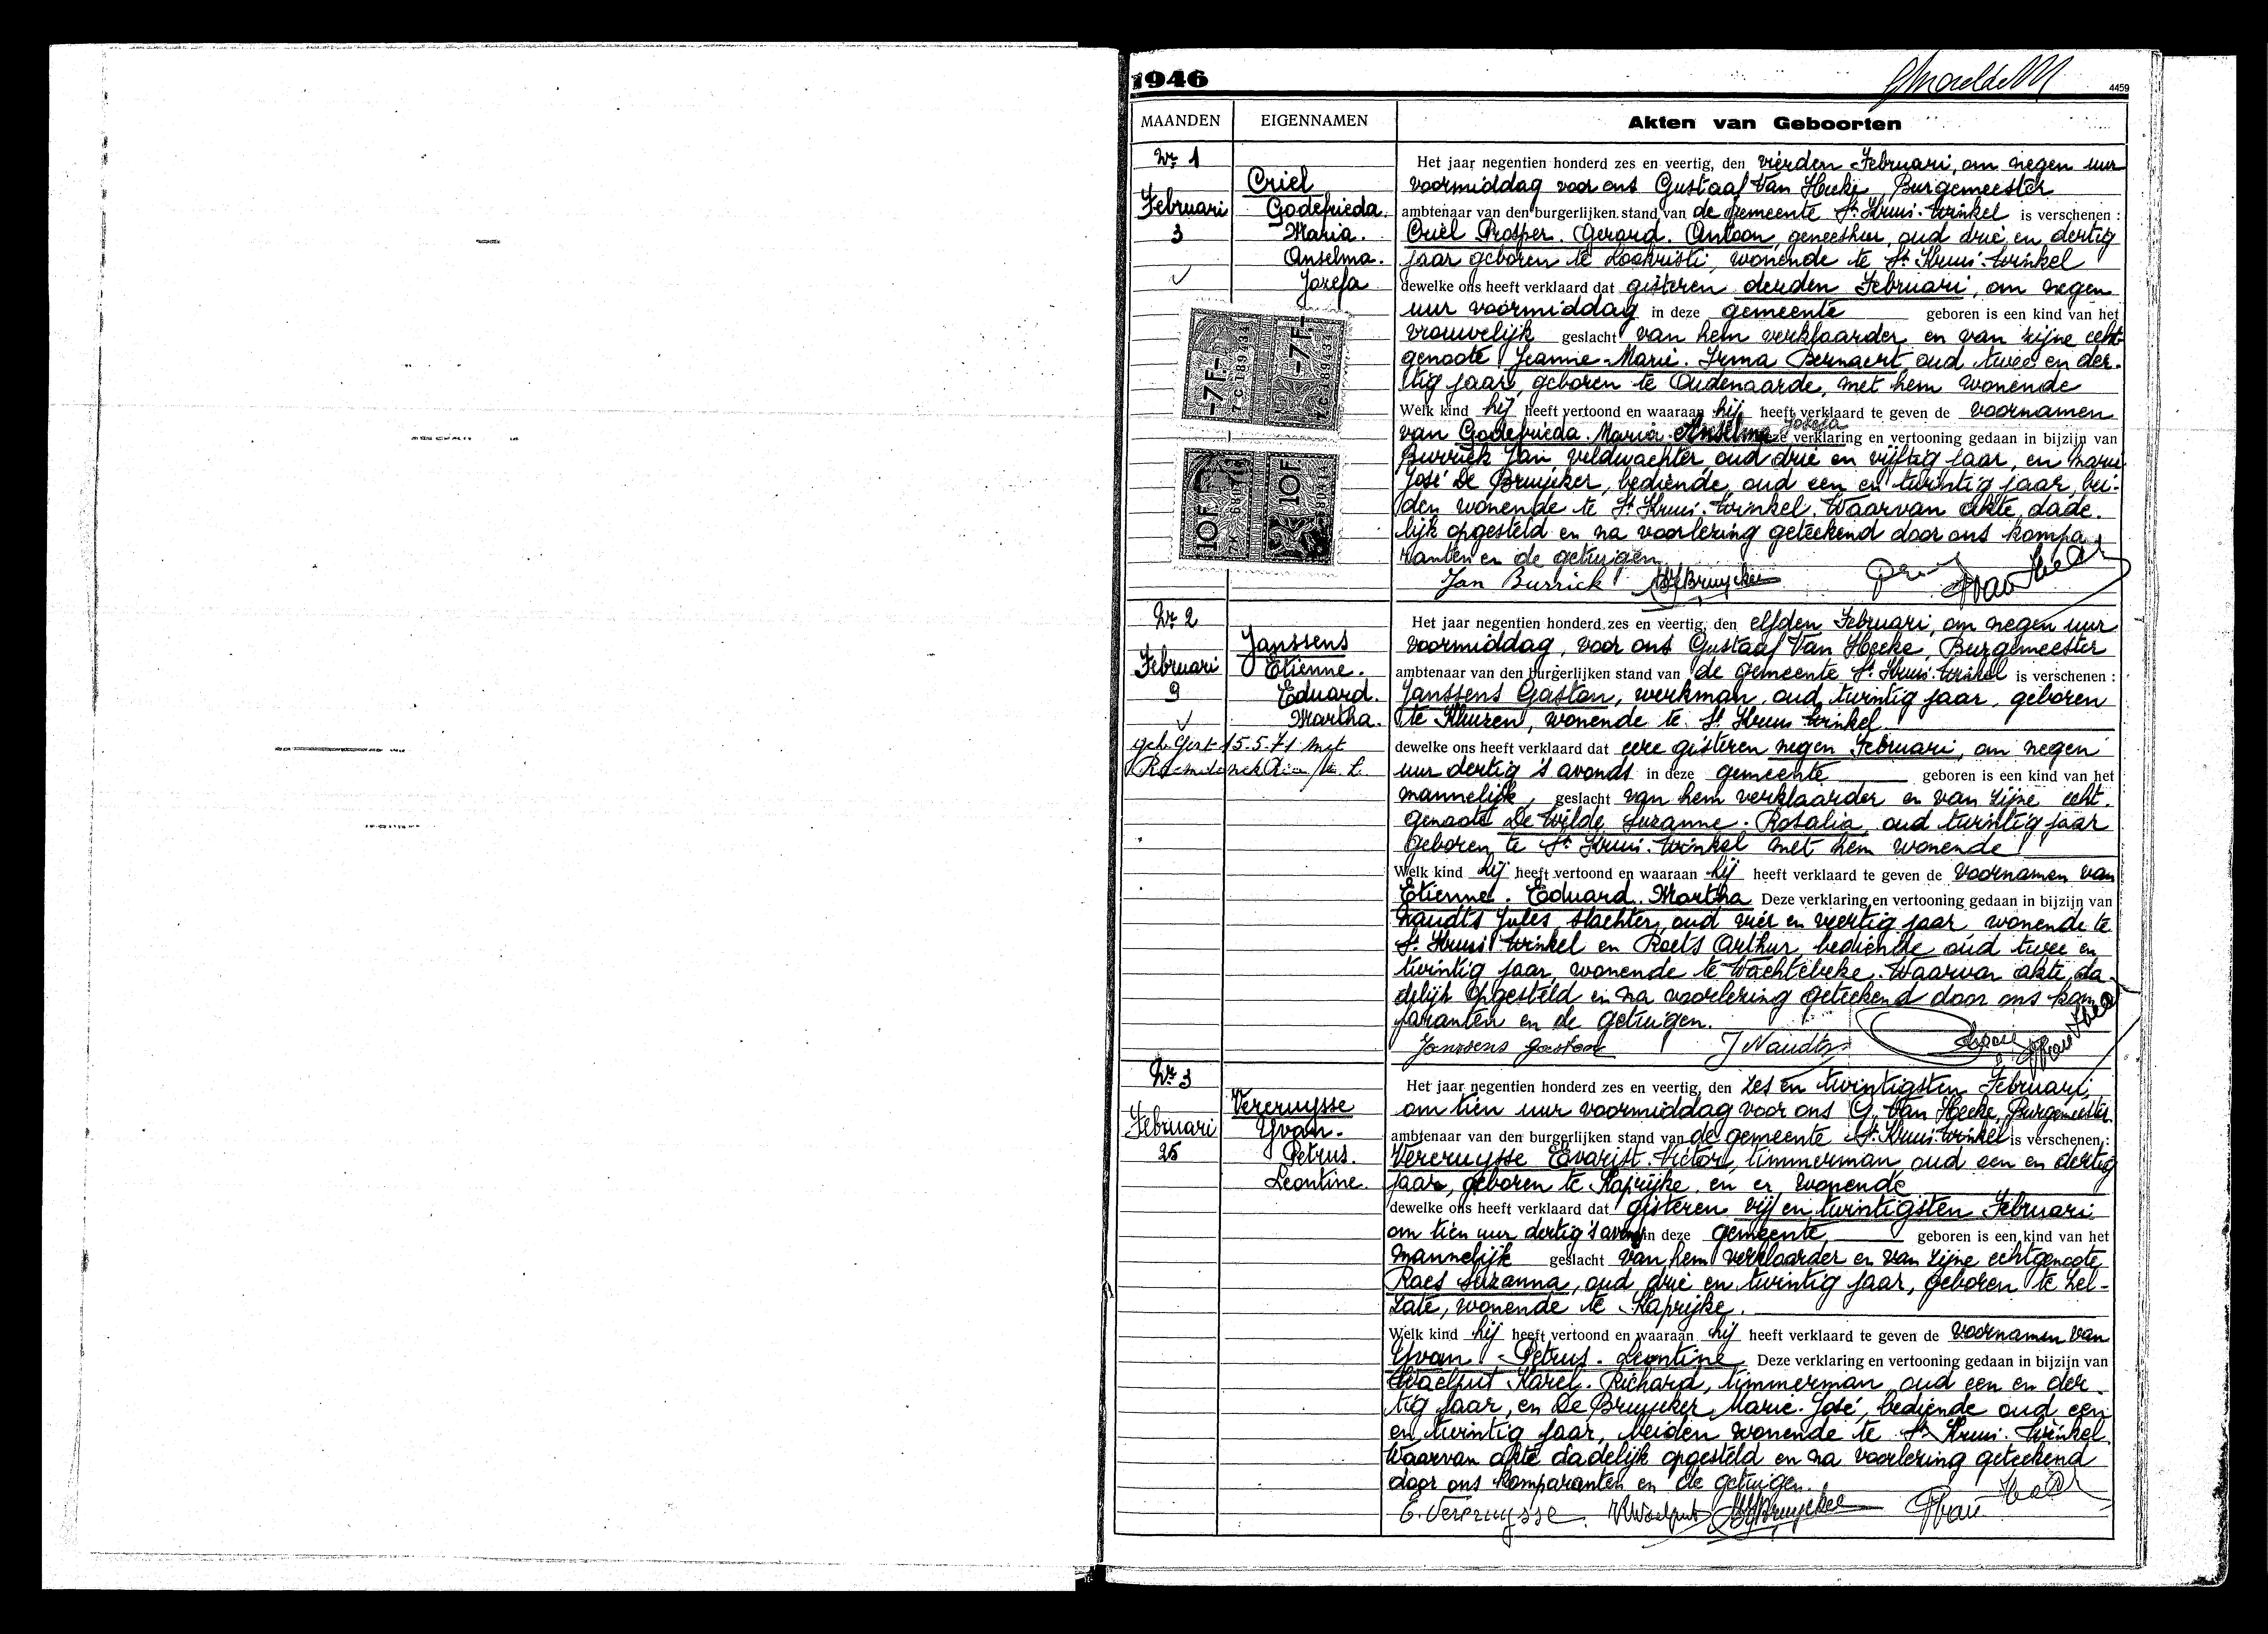 1946
4459
MAANDEN EIGENNAMEN Akten van Geboorten
Nr 1
Februari
3
Criel
Godefrieda.
Maria.
Anselma.
Jozefa
-7F.-
-7F.-
10F
10F.
Het jaar negentien honderd zes en veertig, den vierden Februari, om negen uur
voormiddag voor ons Gustaaf Van Hecke, Burgemeester
ambtenaar van den burgerlijken stand van de gemeente St Kruis-Winkel is verschenen :
Criel Prosper. Gerard. Antoon, geneesheer, oud drie en dertig
jaar geboren te Lookristi, wonende te St Kruis-Winkel
dewelke ons heeft verklaard dat gisteren derden Februari, om negen
uur voormiddag in deze gemeente geboren is een kind van het
vrouwelijk geslacht van hem verklaarder en van zijne echt-
genoote Jeanne-Marie. Irma Bernaert, oud twee en der-
tig jaar, geboren te Oudenaarde, met hem wonende
Welk kind hij heeft vertoond en waaraan hij heeft verklaard te geven de voornamen
van Godefrieda. Maria. Anselma Josefa Deze verklaring en vertooning gedaan in bijzijn van
Burrick Jan veldwachter oud drie en vijftig jaar, en Marie
José De Bruycker, bediende, oud een en twintig jaar, bei-
den wonende te St Kruis-Winkel. Waarvan akte, dade-
lijk opgesteld en na voorlezing geteekend door ons kompa-
ranten en de getuigen
Jan Burrick MJDeBruycker
Nr 2
Februari
9
Janssens
Etienne.
Eduard.
Martha.
15.5.71 met
Het jaar negentien honderd zes en veertig, den elfden Februari, om negen uur
voormiddag, voor ons Gustaaf Van Hecke, Burgemeester
ambtenaar van den burgerlijken stand van de gemeente St Kruis-Winkel is verschenen :
Janssens Gaston, werkman, oud twintig jaar, geboren
te Kluizen, wonende te St Kruis Winkel
dewelke ons heeft verklaard dat eere gisteren negen Februari, om negen
uur dertig 's avonds in deze gemeente geboren is een kind van het
mannelijk, geslacht van hem verklaarder en van zijne echt-
genoote De Wilde Suzanne. Rosalia, oud twintig jaar
geboren te St Kruis-Winkel met hem wonende
Welk kind hij heeft vertoond en waaraan hij heeft verklaard te geven de voornamen van
Etienne. Eduard. Martha Deze verklaring en vertooning gedaan in bijzijn van
Naudts Jules, slachter, oud vier en veertig jaar, wonende te
St Kruis Winkel en Roels Arthur, bediende oud twee en
twintig jaar, wonende te Wachtebeke. Waarvan akte, da-
delijk opgesteld en na voorlezing geteekend door ons kom
paranten en de getuigen.
Janssens Gaston J Naudts
Nr 3
Februari
25
Vercruysse
Yvan.
Petrus.
Leontine.
Het jaar negentien honderd zes en veertig, den zes en twintigsten Februari,
om tien uur voormiddag voor ons G. Van Hecke, Burgemeester
ambtenaar van den burgerlijken stand van de gemeente St Kruis-Winkel is verschenen :
Vercruysse Evarist. Victor, timmerman, oud een en dertig
jaar, geboren te Kaprijke en er wonende
dewelke ons heeft verklaard dat gisteren vijf en twintigsten Februari
om tien uur dertig 's avonds in deze gemeente, geboren is een kind van het
mannelijk geslacht van hem verklaarder en van zijne echtgenoote,
Raes Suzanna, oud drie en twintig jaar, geboren te Zel-
zate, wonende te Kaprijke.
Welk kind hij heeft vertoond en waaraan hij heeft verklaard te geven de voornamen van
Yvan. Petrus. Leontine Deze verklaring en vertooning gedaan in bijzijn van
Waelput Karel. Richard, timmerman, oud een en der-
tig jaar, en De Bruycker Marie-José, bediende oud een
en twintig jaar, beiden wonende te St Kruis-Winkel
Waarvan akte dadelijk opgesteld en na voorlezing geteekend
door ons komparanten en de getuigen.
E. Vercruysse. KWaelput MJDeBruycker